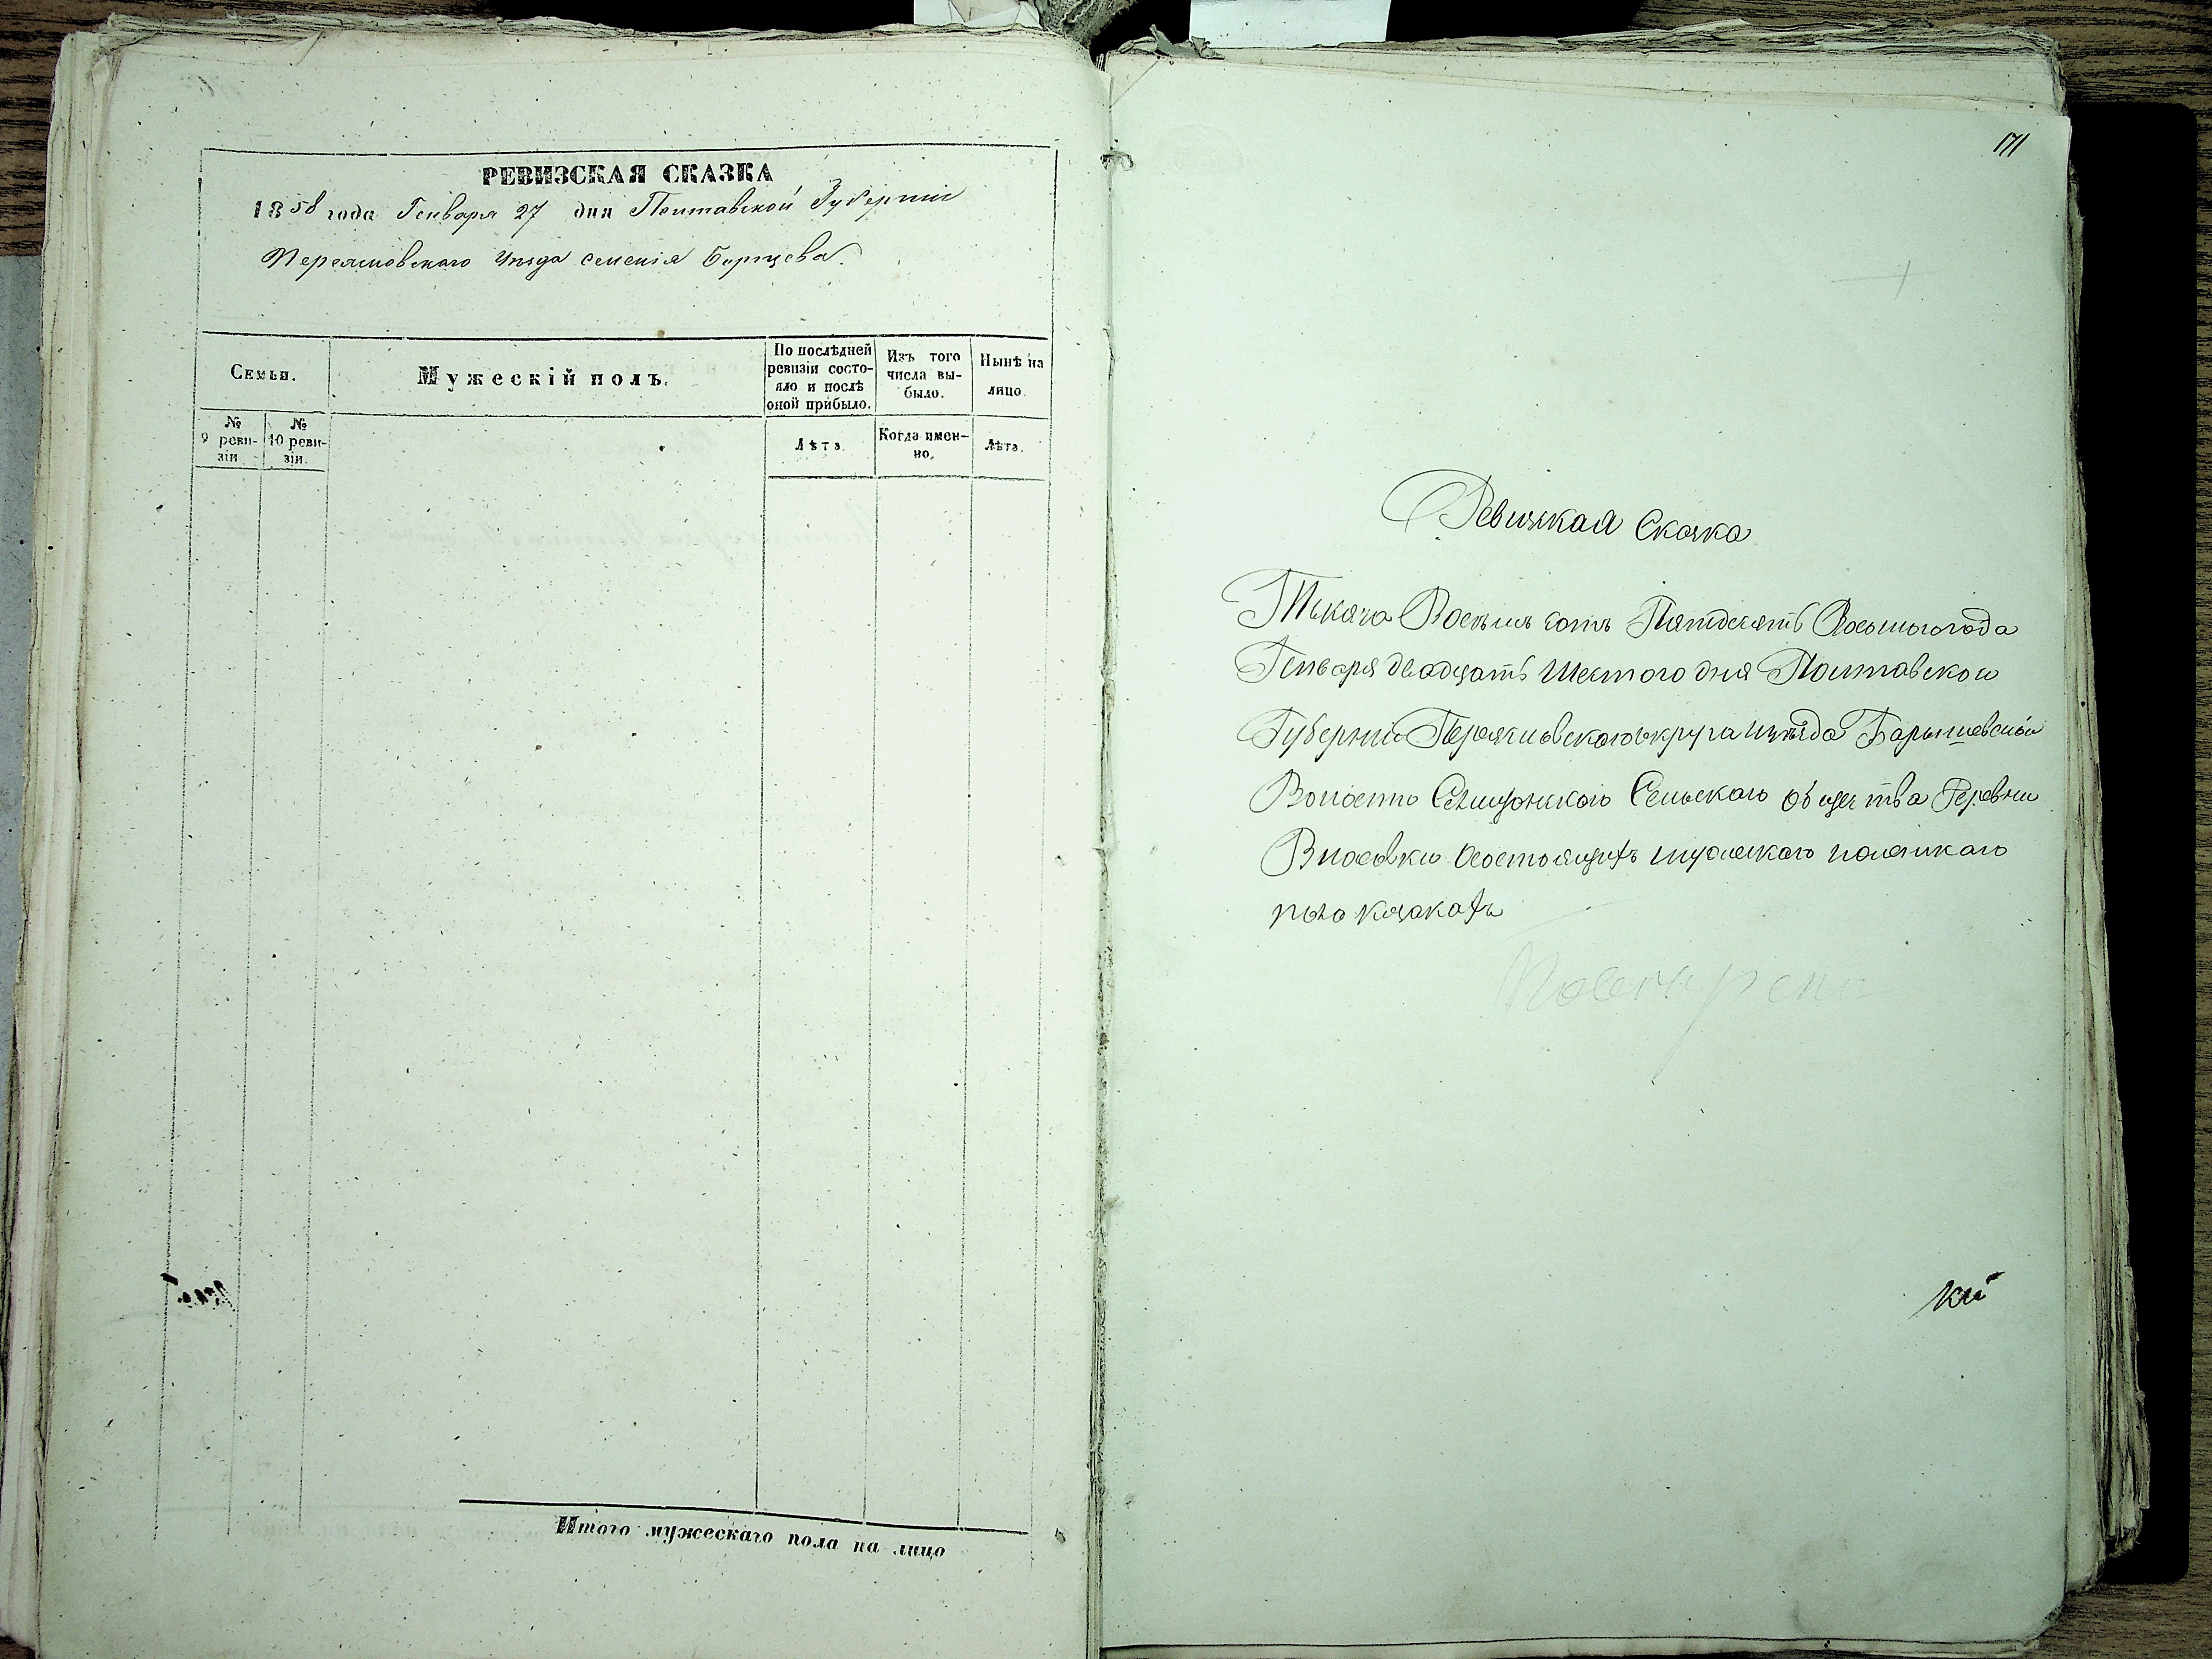 РЕВИЗСКАЯ СКАЗКА
1858 года Генваря 27 дня Полтавской Губерніи
Переясловскаго Уезда селенія Борщева.
Семьи.
Мужескій полъ.
По послѣдней ревизіи состо-
яло и послѣ
оной прибыло.
Изъ того
числа вы-
было.
Нынѣ на
лицо.
№
9 реви-
зіи
№
10 реви-
зіи.
Лѣта.
Когда имен-
но.
Лѣта.
Итого мужескаго пола на лицо
171
Ревизкая Сказка
Тысяча Восемь сотъ Пятдесятъ Восьмого года
Генваря двадцать Шестого дня Полтавской
Губерніи Переясловского округа иуезда Барышевской
Волости Сельского общества Деревни
Власовки состоящихъ мужескаго
казакахъ
кій